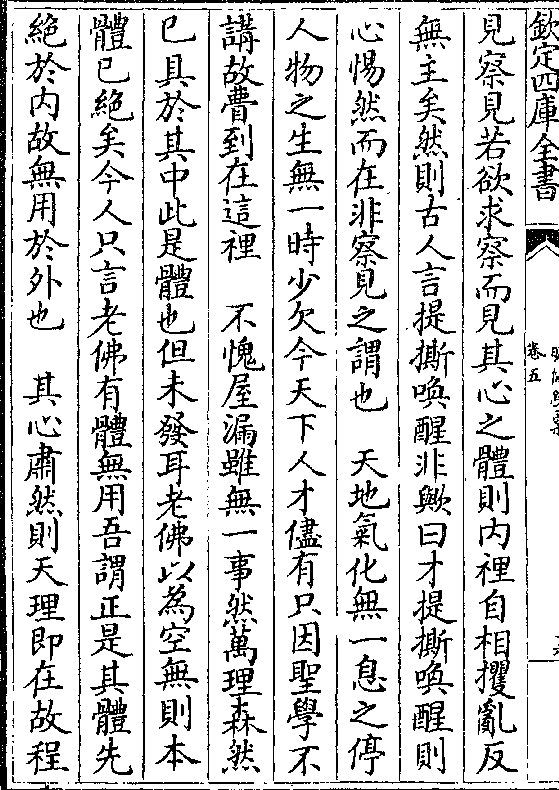 欽定四庫全書
卷五
見察見若欲求察而見其心之體則内裡自相攫亂反
無主矣然則古人言提撕喚醒非歟曰才提撕喚醒則
心惕然而在非察見之謂也　天地氣化無一息之停
人物之生無一時少欠今天下人才儘有只因聖學不
講故䕫到在這裡　不愧屋漏雖無一事然萬理森然
已具於其中此是體也但未發耳老佛以為空無則本
體已絶矣今人只言老佛有體無用吾謂正是其體先
絶於内故無用於外也　其心肅然則天理即在故程